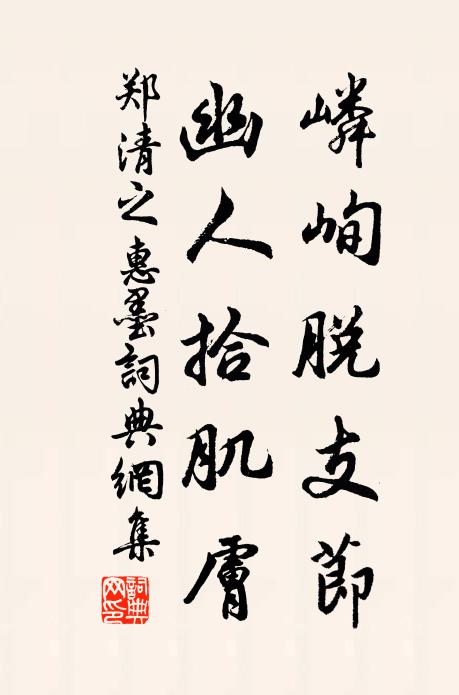 嶙峋脱支節
幽人拾肌膚
郑清之惠墨詞典網集
詞典网印